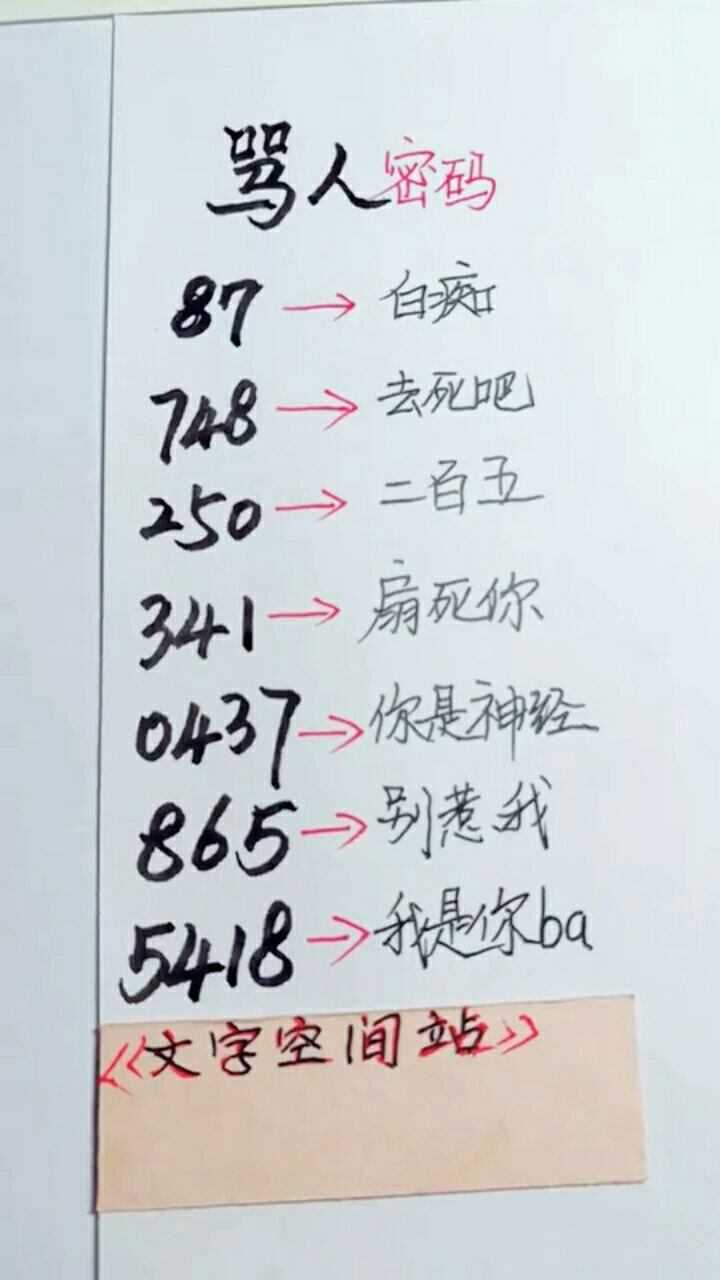 骂人密码
87→白痴
748→去死吧
250→二百五
341→扇死你
0437→你是神经
865→别惹我
5418→我是你ba
《文字空间站》